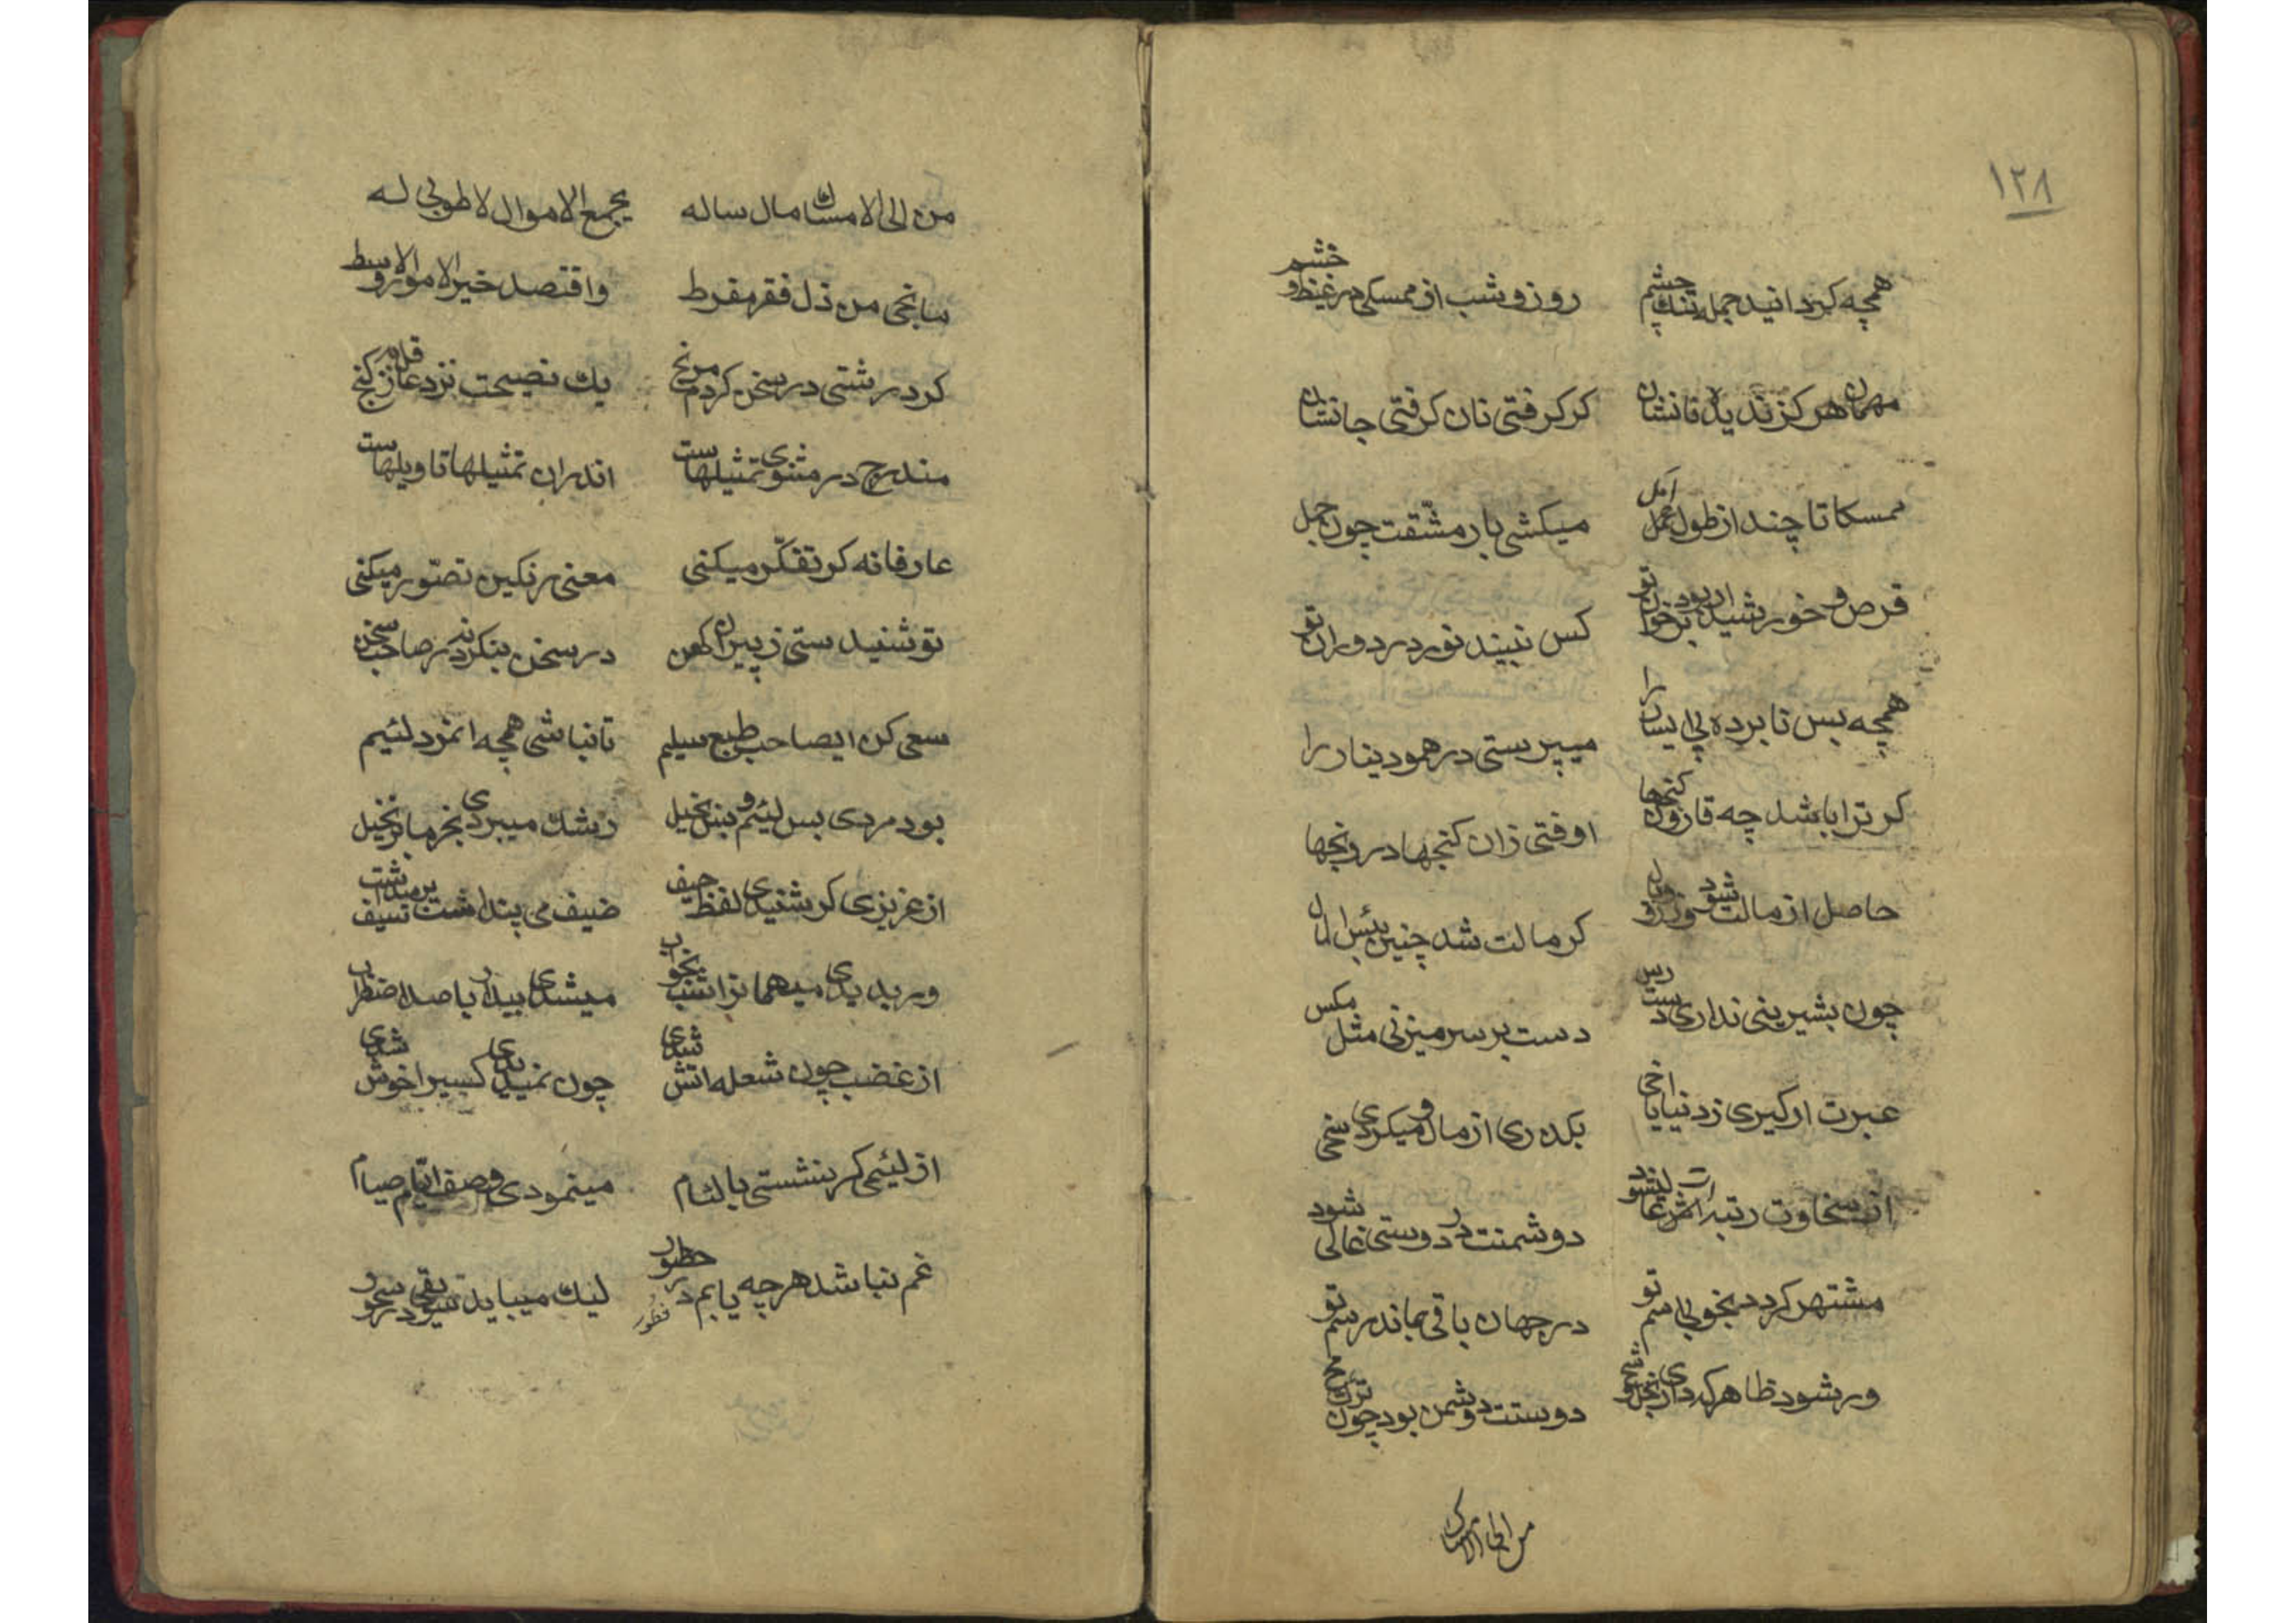 ۱۲۸
همچه کرد انید جمله تنک چشم روز و شب از ممسکی در غیظ و خشم
مهمان هرکز ندیده نانشان کر کرفتی نان کرفتی جانشان
ممسکا تا چند از طول امل میکشی بار مشقت چون جمل
قرص خورشید ار بود بر خوان تو کس نبیند نور در دوران تو
همچه بس نابرده پی ایسار را میپرستی درهم و دینار را
کر ترا باشد چه قارون کنجها اوفتی زان کنجها در رنجها
حاصل از مالت شود وزر و وبال کر مالت شد چنین بئس المال
چون بشیرینی نداری دست رس دست بر سر میزنی مثل مکس
عبرت ار کیری ز دنیا یا اخی بکذری از مال و میکردی سخی
از سخاوت رتبه ات عالی شود دوشمنت در دوستی غالی شود
مشتهر کردد بخوبی اسم تو در جهان باقی بماند رسم تو
ور شود ظاهر که داری بخل و شح دوستت دوشمن بود چون
من الی الامساک
من الی الامساک مال ساله یجمع الاموال لا طوبی له
سانجی من ذل فقر مفرط واقتصد خیر الامور الاوسط
کر درشتی در سخن کردم مرنج یک نصیحت نزد عاقل به ز کنج
مندرج در مثنوی تمثیلهاست اندران تمثیلها تاویلهاست
عارفانه کر تفکر میکنی معنی رنکین تصور میکنی
تو شنیدستی ز پیران کهن در سخن بنکر نه در صاحب سخن
سعی کن ایصاحب طبع سلیم تا نباشی همچه انمرد لئیم
بود مردی بس لئیم و بس بخیل رشک میبردی بخرما بر نخیل
از عزیزی کر شنیدی لفظ حیف ضیف می پنداشت بر میداشت سیف
ور بدیدی میهمانرا شب بخواب میشدی بیدار با صد اضطراب
از غضب چون شعله اتش شدی چون نمیدیدی کسیرا خوش شدی
از لئیمی کر بنشستی با لئام مینمودی وصف ایام صیام
غم نباشد هرچه یابم در حظور لیک میباید بقی در سحور